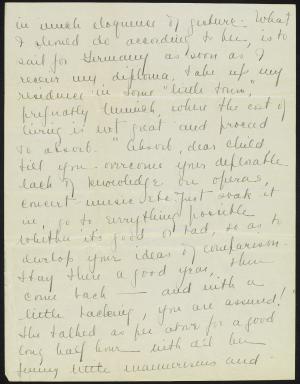 in much eloquence of gesture. What
I should do according to her, is to
sail for Germany as soon as I
receive my diploma, take up my
residence in some "little town,"
preferably Munich, where the cost of
living is not great and proceed
to absorb. "Absorb, dear child
till you overcome your deplorable
lack of knowledge on operas,
concert music etc. Just soak it
in, go to everything possible
whether it's good or bad, so as to
develop your ideas of comparison.
Stay there a good year, then
come back — and with a
little backing, you are assured!"
She talked as per above for a good
long half hour with all her
funny little mannerisms and